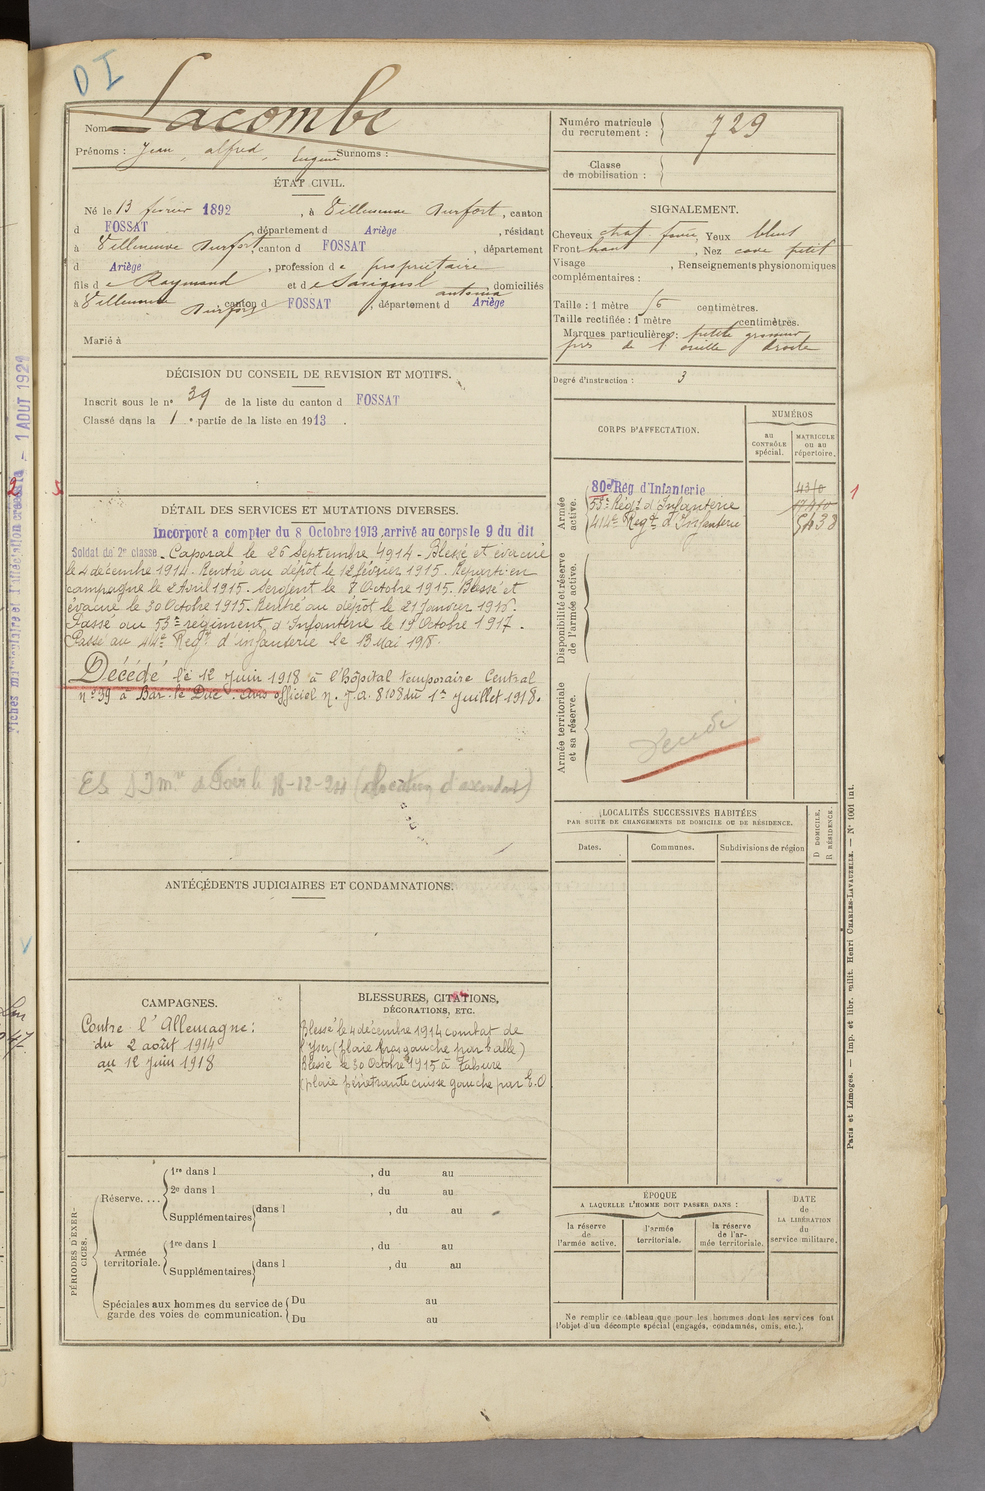 DI
Nom Lacombe
Prénoms : Jean, alfred, Eugène Surnoms :
ÉTAT CIVIL.
Né le 13 février 1892, à Villeneuve Durfort, canton
d FOSSAT, département d Ariège, résidant
à Villeneuve Durfort, canton d FOSSAT, département
d Ariège, profession de propriétaire
fils de Raymond et de antonia domiciliés
à Villeneuve Durfort, canton d FOSSAT, département d Ariège
Marié à
DÉCISION DU CONSEIL DE REVISION ET MOTIFS.
Inscrit sous le n° 39 de la liste du canton d FOSSAT
Classé dans la 1e partie de la liste en 1913.
DÉTAIL DES SERVICES ET MUTATIONS DIVERSES.
Incorporé a compter du 8 Octobre 1913, arrivé au corps le 9 du dit
Soldat de 2e classe. Caporal le 26 Septembre 1914 - Blessé et évacué
le 4 decembre 1914. Rentré au dépôt le 12 février 1915. Reparti en
campagne le 2 Avril 1915. Sergent le 8 Octobre 1915. Blessé et
évacué le 30 Octobre 1915. Rentré au dépôt le 21 Janvier 1916.
Passé au 53e regiment d'Infanterie le 19 Octobre 1917.
Passé au 414e Regt d'infanterie le 13 Mai 1918.
Décédé le 12 Juin 1918 à l'Hôpital temporaire Central
n° 39 à Bar-le Duc. Avis officiel n. J.A. 8108 du 1er Juillet 1918.
18-12-24
ANTÉCÉDENTS JUDICIAIRES ET CONDAMNATIONS.
CAMPAGNES.
Contre l'Allemagne:
du 2 août 1914
au 12 Juin 1918
BLESSURES, CITATIONS,
DÉCORATIONS, ETC.
Blessé le 4 décembre 1914 combat de
l'Yser (plaie bras gauche par balle)
Blessé le 30 Octobre 1915 à Tahure
(plaie pénétrante cuisse gauche par E.O
PÉRIODES D'EXERCICES.
Réserve....
1re dans l , du au
2e dans l , du au
Supplémentaires dans l , du au
Armée territoriale.
1re dans l , du au
Supplémentaires dans l , du au
Spéciales aux hommes du service de garde des voies de communication.
Du au
Du au
Numéro matricule du recrutement : 729
Classe de mobilisation :
SIGNALEMENT.
Cheveux chat. foncé, Yeux bleus
Front haut, Nez cave petit
Visage , Renseignements physionomiques
complémentaires :
Taille : 1 mètre 56 centimètres.
Taille rectifiée : 1 mètre centimètres.
Marques particulières : petite grosseur
près de l'oreille droite
Degré d'instruction : 3
CORPS D'AFFECTATION.
NUMÉROS
au CONTRÔLE spécial.
MATRICULE ou au répertoire.
Armée active.
80e Rég d'Infanterie
53e Régt d'Infanterie
414e Regt d'Infanterie
1
Disponibilité et réserve de l'armée active.
Armée territoriale et sa réserve.
LOCALITÉS SUCCESSIVES HABITÉES
PAR SUITE DE CHANGEMENTS DE DOMICILE OU DE RÉSIDENCE.
Dates.
Communes.
Subdivisions de région
D DOMICILE.
R RÉSIDENCE.
ÉPOQUE
A LAQUELLE L'HOMME DOIT PASSER DANS :
la réserve de l'armée active.
l'armée territoriale.
la réserve de l'armée territoriale.
DATE de LA LIBÉRATION du service militaire.
Ne remplir ce tableau que pour les hommes dont les services font
l'objet d'un décompte spécial (engagés, condamnés, omis, etc.).
Paris et Limoges. — Imp. et libr. milit. Henri CHARLES-LAVAUZELLE. — N° 1001 int.
1 AOUT 1929